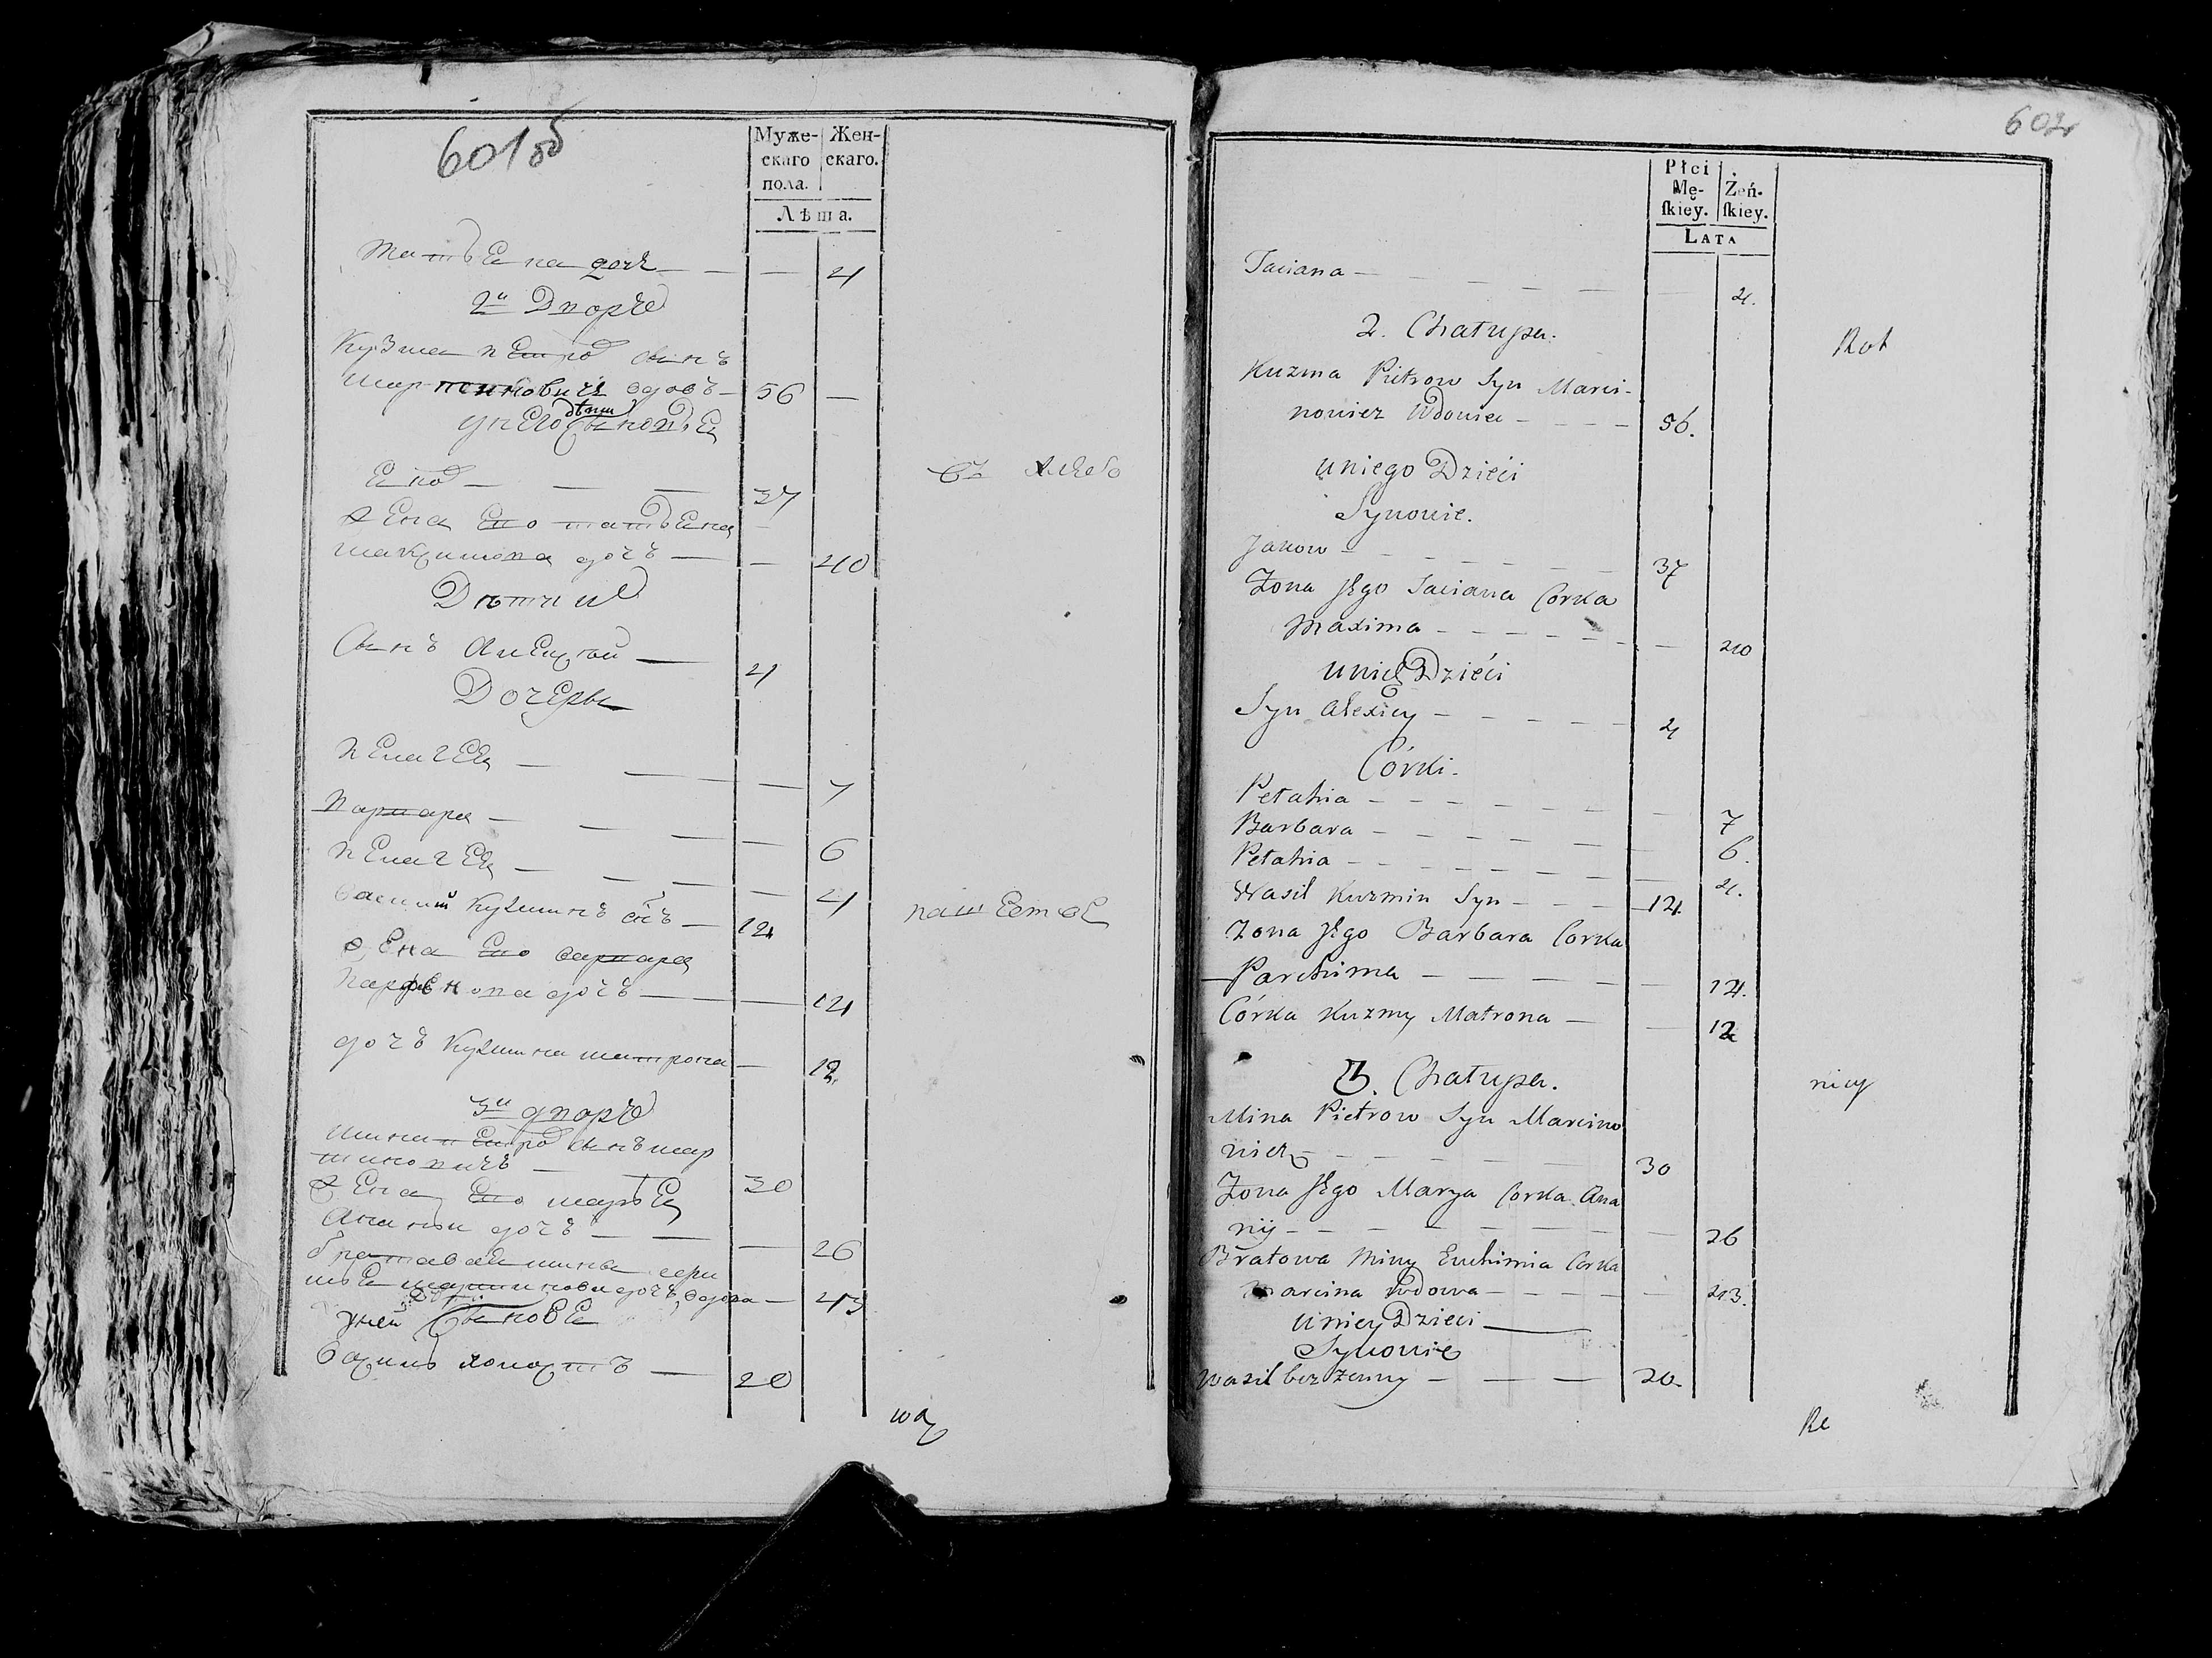 601 об
Муже- Жен-
скаго скаго.
пола.
Лѣта.
татьЕна дочь — — — 4
2й Дворъ
Кузма пЕтров сынъ
мартиновичь вдовъ — 56 —
у нЕго дѣти сыновьЕ
— — — 37
жЕна Его татьЕна —
максимова дочь — — 40
Дѣти их
Сынъ АлЕксей — 4
ДочЕры
пЕлагЕя — — — — 7
варвара — — — — 6
пЕлагЕя — — — — 4
василий Кузминъ снъ — 14
жЕна Его варвара
парфЕнова дочъ — — 14
дочъ Кузмина матрона — 12
3й дворъ
мина пЕтров сынъ мар
тиновичъ — 30
жЕна Его марьЕя
Ананьи дочъ — — — 26
мартинова дочъ вдова — 43
у нЕй дѣти СыновьЕ
холостъ — 20
въ хлебо
пашЕствЕ
602
Płci
Mę- Żeń-
skiey. skiey.
LATA
Taciana — — — — — 4.
2. Chałupa.
Rol
Kuzma Pietrow Syn Marci-
nowicz Wdowiec — — — — 56.
u niego Dzieći
Synowie.
Jakow — — — — — — 37
Żona Jego Taciana Corka
Maxima — — — — — — — 40
u nich Dzieći
Syn Alexiey — — — — — 4
Córki.
Pełahia — — — — — — — 7
Barbara — — — — — — — 6.
Pełahia — — — — — — — 4.
Wasil Kuzmin Syn — — — 14.
Żona Jego Barbara Corka
Parchima — — — — — — 14.
Córka Kuzmy Matrona — — 12
3. Chałupa.
nicy
Mina Pietrow Syn Marcino
wicz — — — — — — 30
Żona Jego Marya Corka Ana
nij — — — — — — — 26
Bratowa Miny Euchimia Corka
Marcina Wdowa — — — — — 43.
u niey Dzieci —
Synowie
Wasil bezżenny — — — 20.
Re